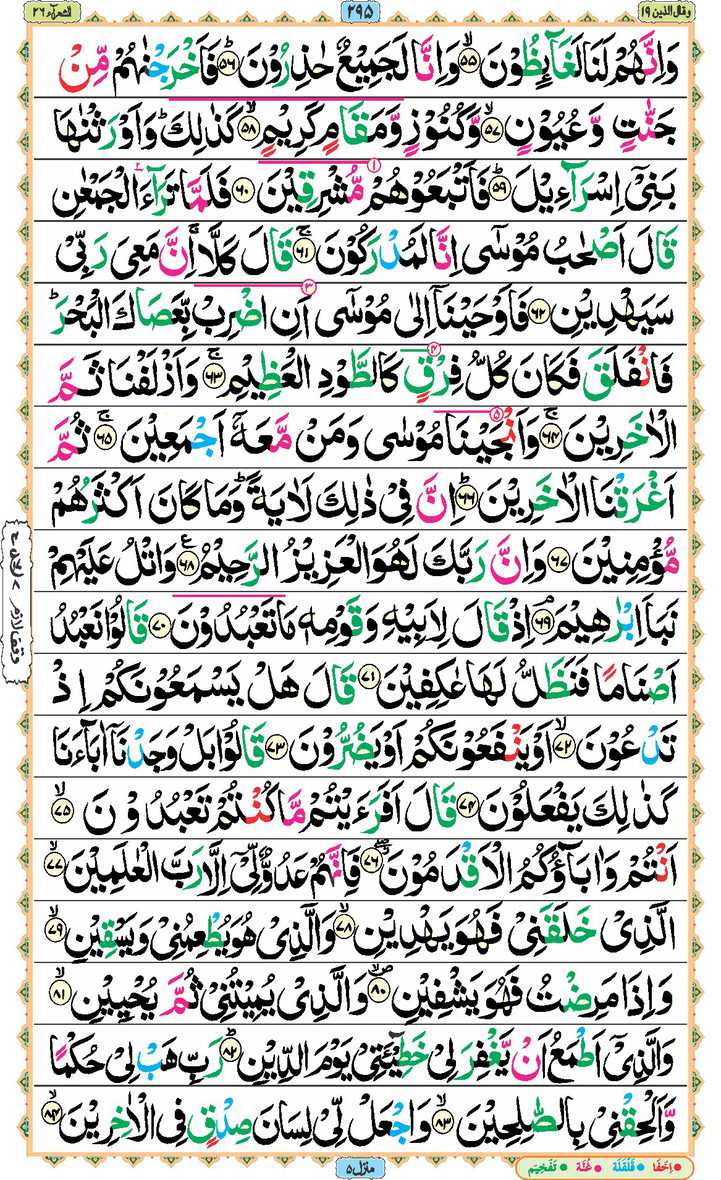 وقال الذین ۱۹
۲۹۵
الشعرآء ۲۶
وَاِنَّهُمْ لَنَا لَغَآئِظُوْنَ ﴿۵۵﴾ وَاِنَّا لَجَمِیْعٌ حٰذِرُوْنَ ﴿۵۶﴾ فَاَخْرَجْنٰهُمْ مِّنْ
جَنّٰتٍ وَّعُیُوْنٍ ﴿۵۷﴾ وَّكُنُوْزٍ وَّمَقَامٍ كَرِیْمٍ ﴿۵۸﴾ كَذٰلِكَ ؕ وَاَوْرَثْنٰهَا
بَنِیْۤ اِسْرَآءِیْلَ ﴿۵۹﴾ فَاَتْبَعُوْهُمْ مُّشْرِقِیْنَ ﴿۶۰﴾ فَلَمَّا تَرَآءَ الْجَمْعٰنِ
قَالَ اَصْحٰبُ مُوْسٰۤی اِنَّا لَمُدْرَكُوْنَ ﴿۶۱﴾ قَالَ كَلَّا ۚ اِنَّ مَعِیَ رَبِّیْ
سَیَهْدِیْنِ ﴿۶۲﴾ فَاَوْحَیْنَاۤ اِلٰی مُوْسٰۤی اَنِ اضْرِبْ بِّعَصَاكَ الْبَحْرَ ؕ
فَانْفَلَقَ فَكَانَ كُلُّ فِرْقٍ كَالطَّوْدِ الْعَظِیْمِ ﴿۶۳﴾ وَاَزْلَفْنَا ثَمَّ
الْاٰخَرِیْنَ ﴿۶۴﴾ وَاَنْجَیْنَا مُوْسٰی وَمَنْ مَّعَهٗۤ اَجْمَعِیْنَ ﴿۶۵﴾ ثُمَّ
اَغْرَقْنَا الْاٰخَرِیْنَ ﴿۶۶﴾ اِنَّ فِیْ ذٰلِكَ لَاٰیَةً ؕ وَمَا كَانَ اَكْثَرُهُمْ
مُّؤْمِنِیْنَ ﴿۶۷﴾ وَاِنَّ رَبَّكَ لَهُوَ الْعَزِیْزُ الرَّحِیْمُ ﴿۶۸﴾ وَاتْلُ عَلَیْهِمْ
نَبَاَ اِبْرٰهِیْمَ ﴿۶۹﴾ اِذْ قَالَ لِاَبِیْهِ وَقَوْمِهٖ مَا تَعْبُدُوْنَ ﴿۷۰﴾ قَالُوْا نَعْبُدُ
اَصْنَامًا فَنَظَلُّ لَهَا عٰكِفِیْنَ ﴿۷۱﴾ قَالَ هَلْ یَسْمَعُوْنَكُمْ اِذْ
تَدْعُوْنَ ﴿۷۲﴾ اَوْ یَنْفَعُوْنَكُمْ اَوْ یَضُرُّوْنَ ﴿۷۳﴾ قَالُوْا بَلْ وَجَدْنَاۤ اٰبَآءَنَا
كَذٰلِكَ یَفْعَلُوْنَ ﴿۷۴﴾ قَالَ اَفَرَءَیْتُمْ مَّا كُنْتُمْ تَعْبُدُوْنَ ﴿۷۵﴾
اَنْتُمْ وَاٰبَآؤُكُمُ الْاَقْدَمُوْنَ ﴿۷۶﴾ فَاِنَّهُمْ عَدُوٌّ لِّیْۤ اِلَّا رَبَّ الْعٰلَمِیْنَ ﴿۷۷﴾
الَّذِیْ خَلَقَنِیْ فَهُوَ یَهْدِیْنِ ﴿۷۸﴾ وَالَّذِیْ هُوَ یُطْعِمُنِیْ وَیَسْقِیْنِ ﴿۷۹﴾
وَاِذَا مَرِضْتُ فَهُوَ یَشْفِیْنِ ﴿۸۰﴾ وَالَّذِیْ یُمِیْتُنِیْ ثُمَّ یُحْیِیْنِ ﴿۸۱﴾
وَالَّذِیْۤ اَطْمَعُ اَنْ یَّغْفِرَ لِیْ خَطِیْٓـَٔتِیْ یَوْمَ الدِّیْنِ ﴿۸۲﴾ رَبِّ هَبْ لِیْ حُكْمًا
وَّاَلْحِقْنِیْ بِالصّٰلِحِیْنَ ﴿۸۳﴾ وَاجْعَلْ لِّیْ لِسَانَ صِدْقٍ فِی الْاٰخِرِیْنَ ﴿۸۴﴾
منزل ۵
اِخْفَا قَلْقَلَة غُنَّة تَفْخِیْم